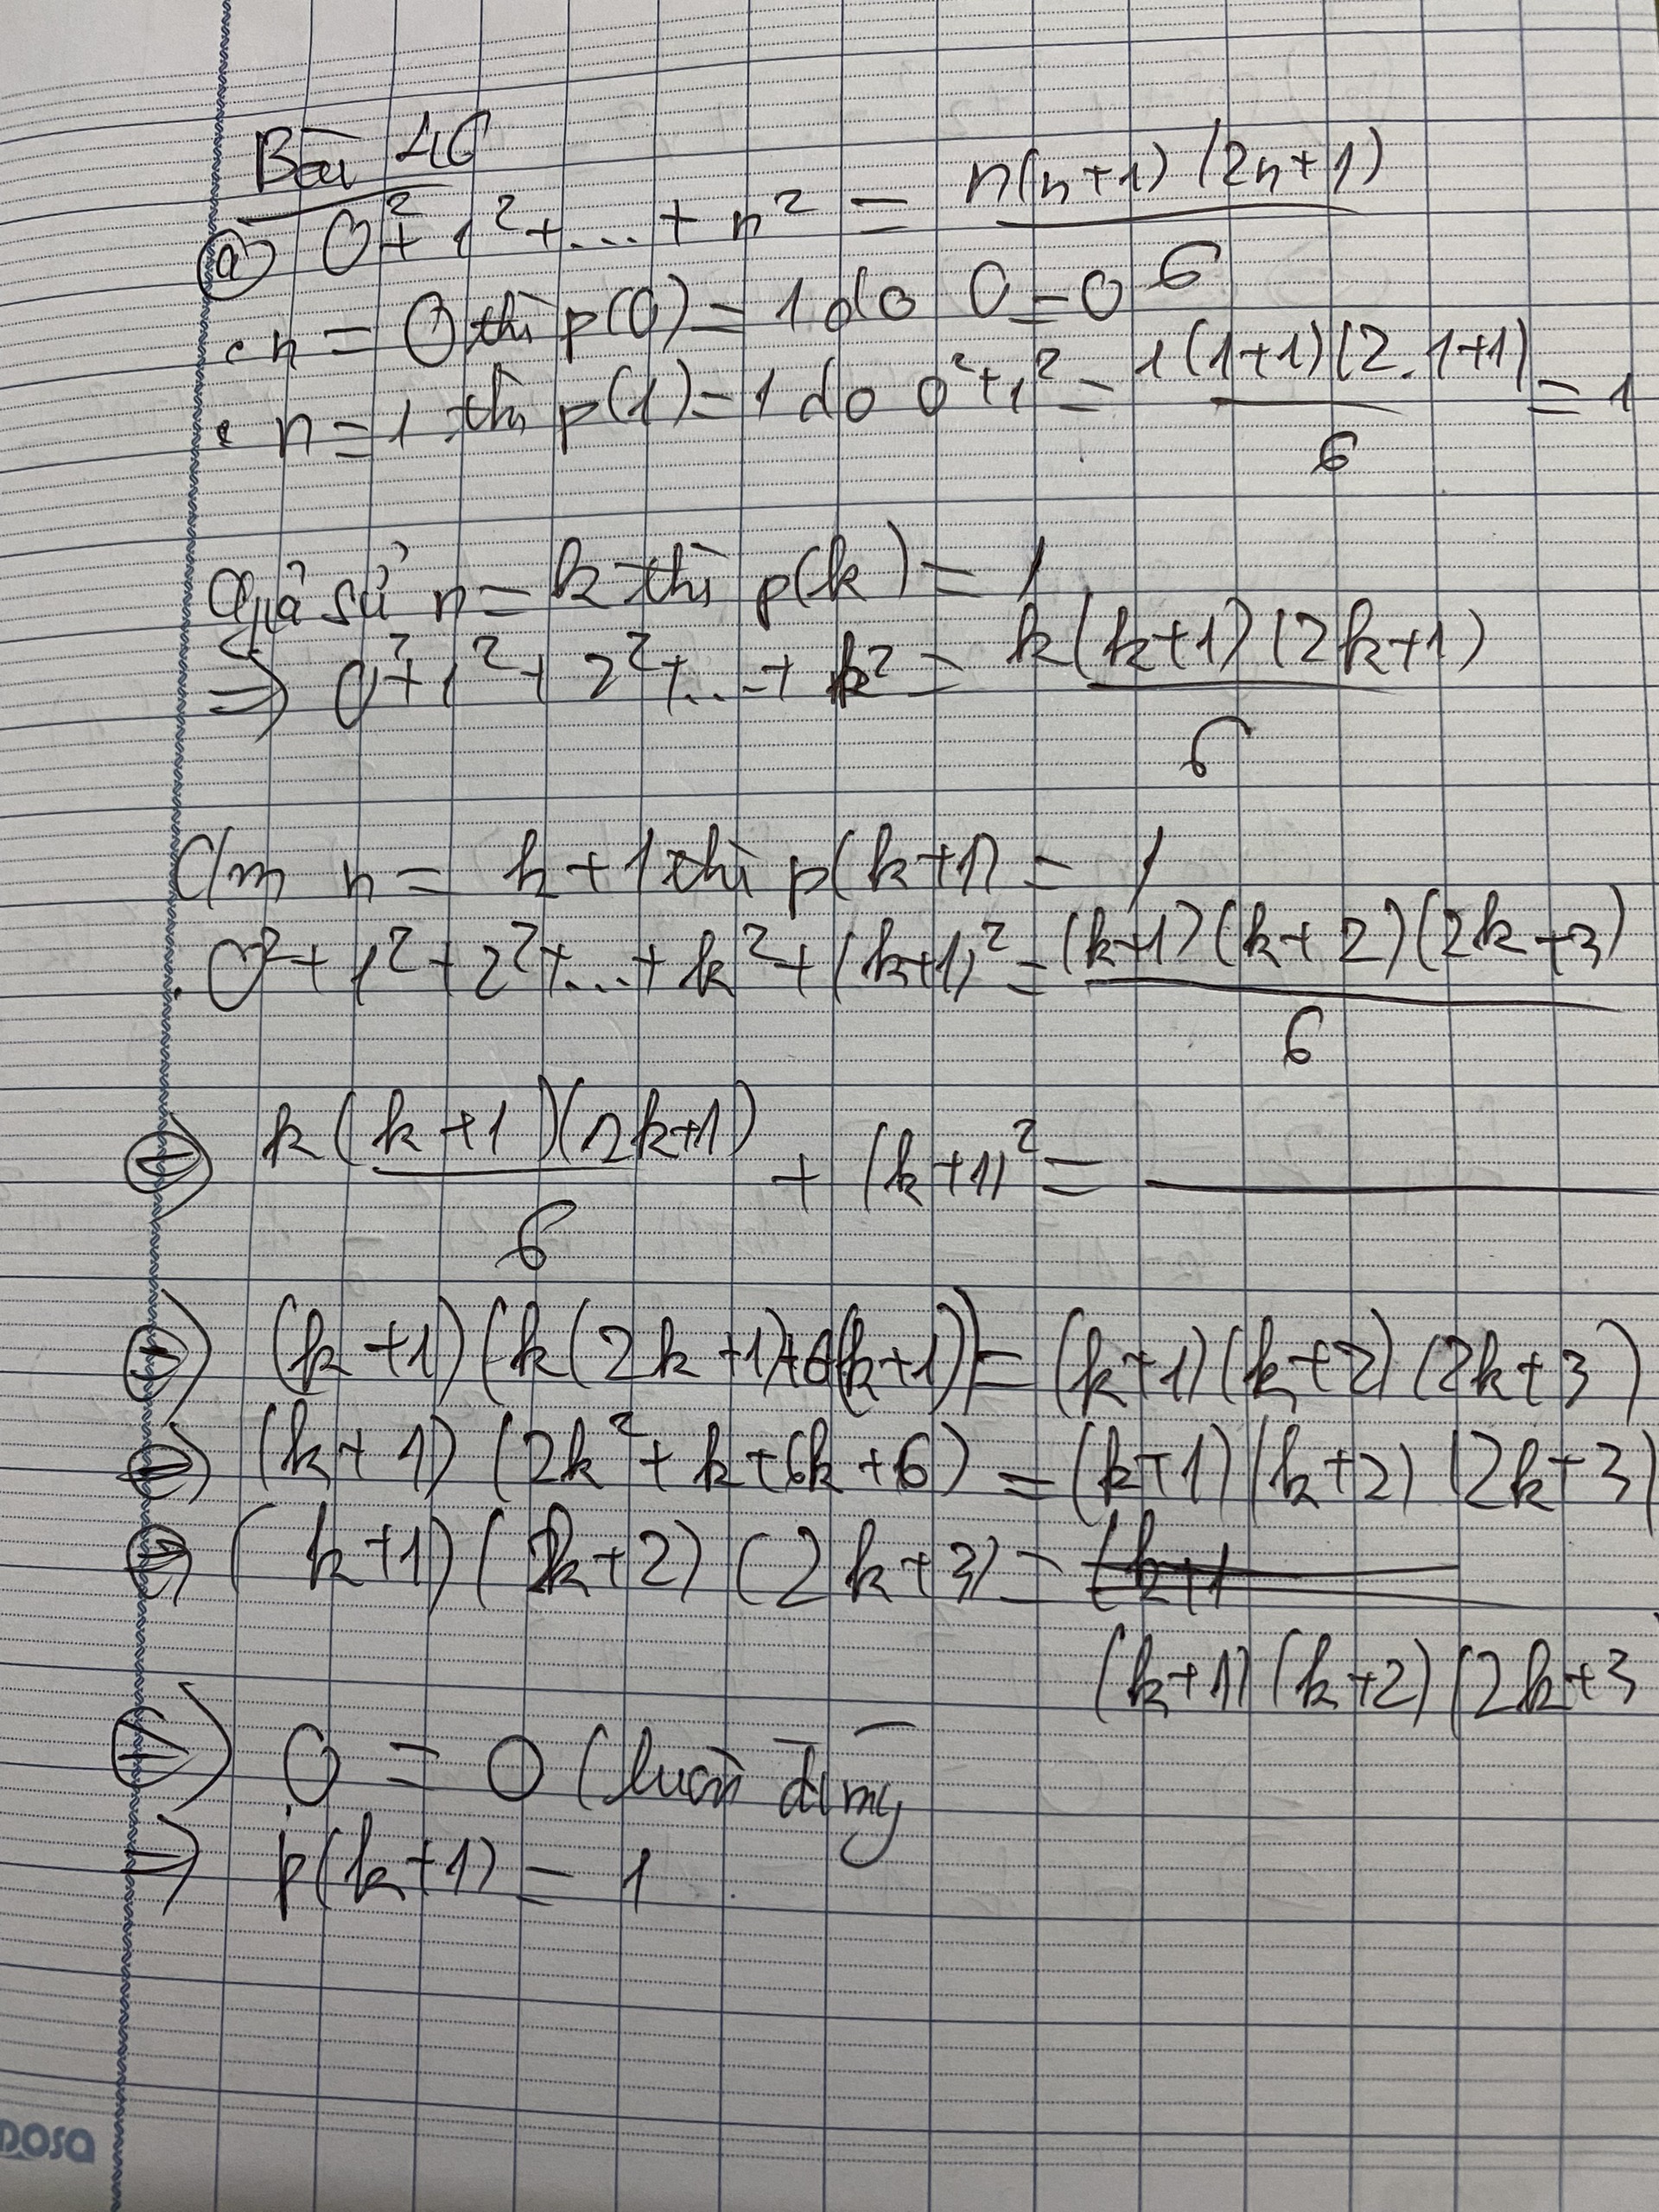 Bài 46
a) 0² + 1² + ... + n² = n(n+1)(2n+1) / 6
• n = 0 thì p(0) = 1 do 0 = 0
• n = 1 thì p(1) = 1 do 0² + 1² = 1(1+1)(2.1+1) / 6 = 1
Giả sử n = k thì p(k) = 1
⇒ 0² + 1² + 2² + ... + k² = k(k+1)(2k+1) / 6
C/m n = k+1 thì p(k+1) = 1
. 0² + 1² + 2² + ... + k² + (k+1)² = (k+1)(k+2)(2k+3) / 6
⇔ k(k+1)(2k+1) / 6 + (k+1)² = ———
⇔ (k+1)(k(2k+1)+6(k+1)) = (k+1)(k+2)(2k+3)
⇔ (k+1)(2k²+k+6k+6) = (k+1)(k+2)(2k+3)
⇔ (k+1)(k+2)(2k+3) =
(k+1)(k+2)(2k+3
⇔ 0 = 0 (luôn đúng
⇒ p(k+1) = 1